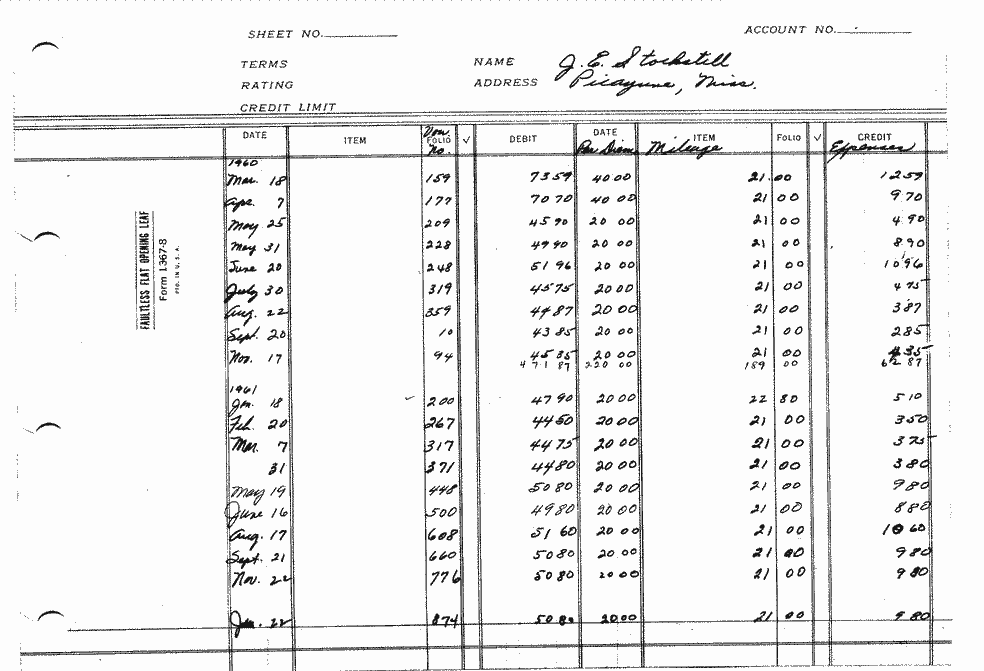 SHEET NO. ACCOUNT NO.
TERMS NAME J. E. Stockstill
RATING ADDRESS Picayune, Miss.
CREDIT LIMIT
DATE ITEM Vou. FOLIO No. √ DEBIT DATE Per Diem ITEM Mileage FOLIO √ CREDIT Expenses
1960
Mar. 18 159 73 59 40 00 21.00 12 59
Apr. 7 177 70 70 40 00 21 00 9 70
May 25 209 45 90 20 00 21 00 4 90
May 31 228 49 90 20 00 21 00 8 90
June 20 248 51 96 20 00 21 00 10 96
July 30 319 45 75 20 00 21 00 4 75
Aug. 22 359 44 87 20 00 21 00 3 87
Sept. 20 10 43 85 20 00 21 00 2 85
Nov. 17 94 45 35 20 00 21 00 4 35
471 87 220 00 189 00 62 87
1961
Jan. 18 200 47 90 20 00 22 80 5 10
Feb. 20 267 44 50 20 00 21 00 3 50
Mar. 7 317 44 75 20 00 21 00 3 75
31 371 44 80 20 00 21 00 3 80
May 19 448 50 80 20 00 21 00 9 80
June 16 500 49 80 20 00 21 00 8 80
Aug. 17 608 51 60 20 00 21 00 10 60
Sept. 21 660 50 80 20 00 21 00 9 80
Nov. 22 776 50 80 20 00 21 00 9 80
Jan. 22 874 50 80 20 00 21 00 9 80
FAULTLESS FLAT OPENING LEAF
Form 1367-8
PTD. IN U. S. A.